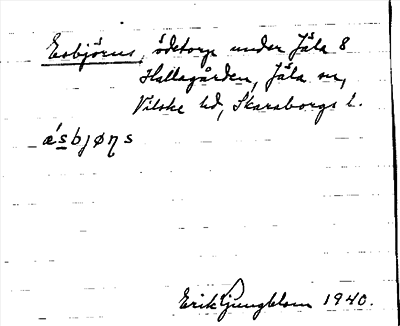 Esbjörns, ödetorp under Jäla 8
Hallagården, Jäla sn,
Vilske hd, Skaraborgs l.
ǽsbjøŋs
Erik Ljungblom 1940.